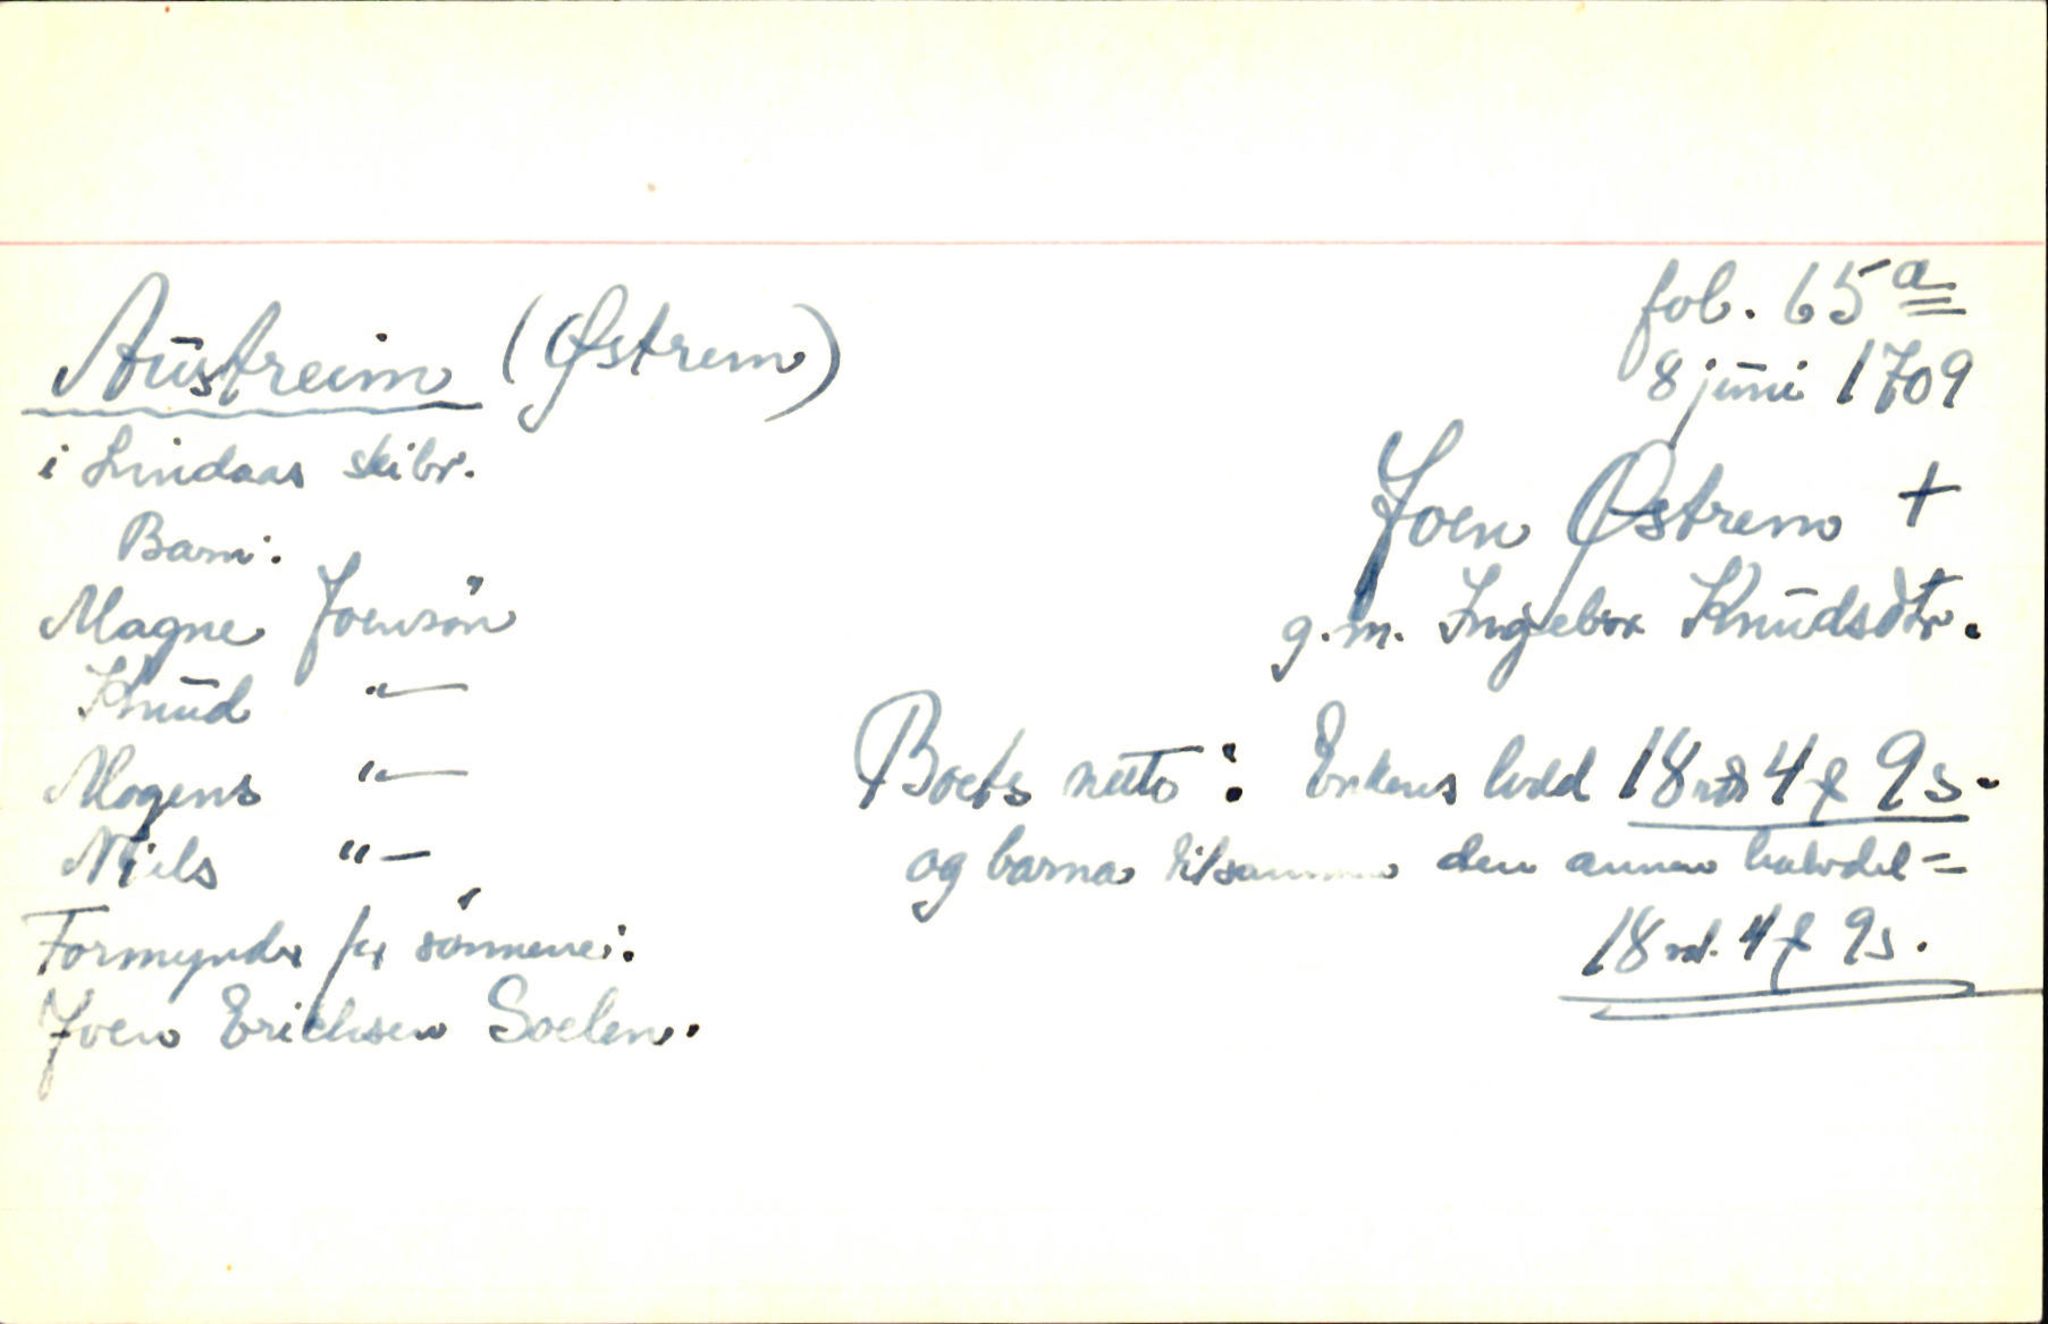 fol. 65 a
Austreim (Østrem)
8 juni 1709
i Lindaas skibr.
Joen Østrem +
Barn:
g.m. Ingebor Knudsdtr.
Magne Joensön
Knud "—
Mogens "—
Boets netto: Enkens lodd 18 rdr 4 ₰ 9 s.
Niels "—
og barna tilsammen den annen halvdel =
18 rd. 4 ₰ 9 s.
Formynder for sönnene:
Joen Erichsen Soelem.